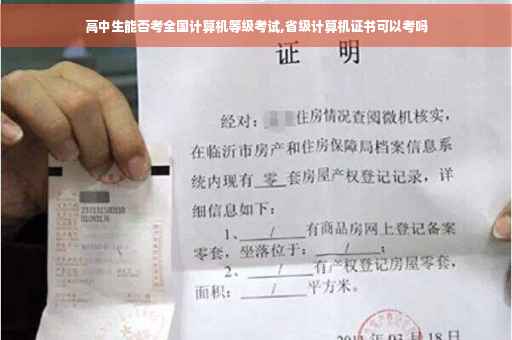 高中生能否考全国计算机等级考试,省级计算机证书可以考吗
证 明
经对: 住房情况查阅微机核实,
在临沂市房产和住房保障局档案信息系
统内现有 零 套房屋产权登记记录, 详
细信息如下:
1、 / 有商品房网上登记备案
零套, 坐落位于: / ;
2、 / 有产权登记房屋零套,
面积: / 平方米。
03 月 18 日